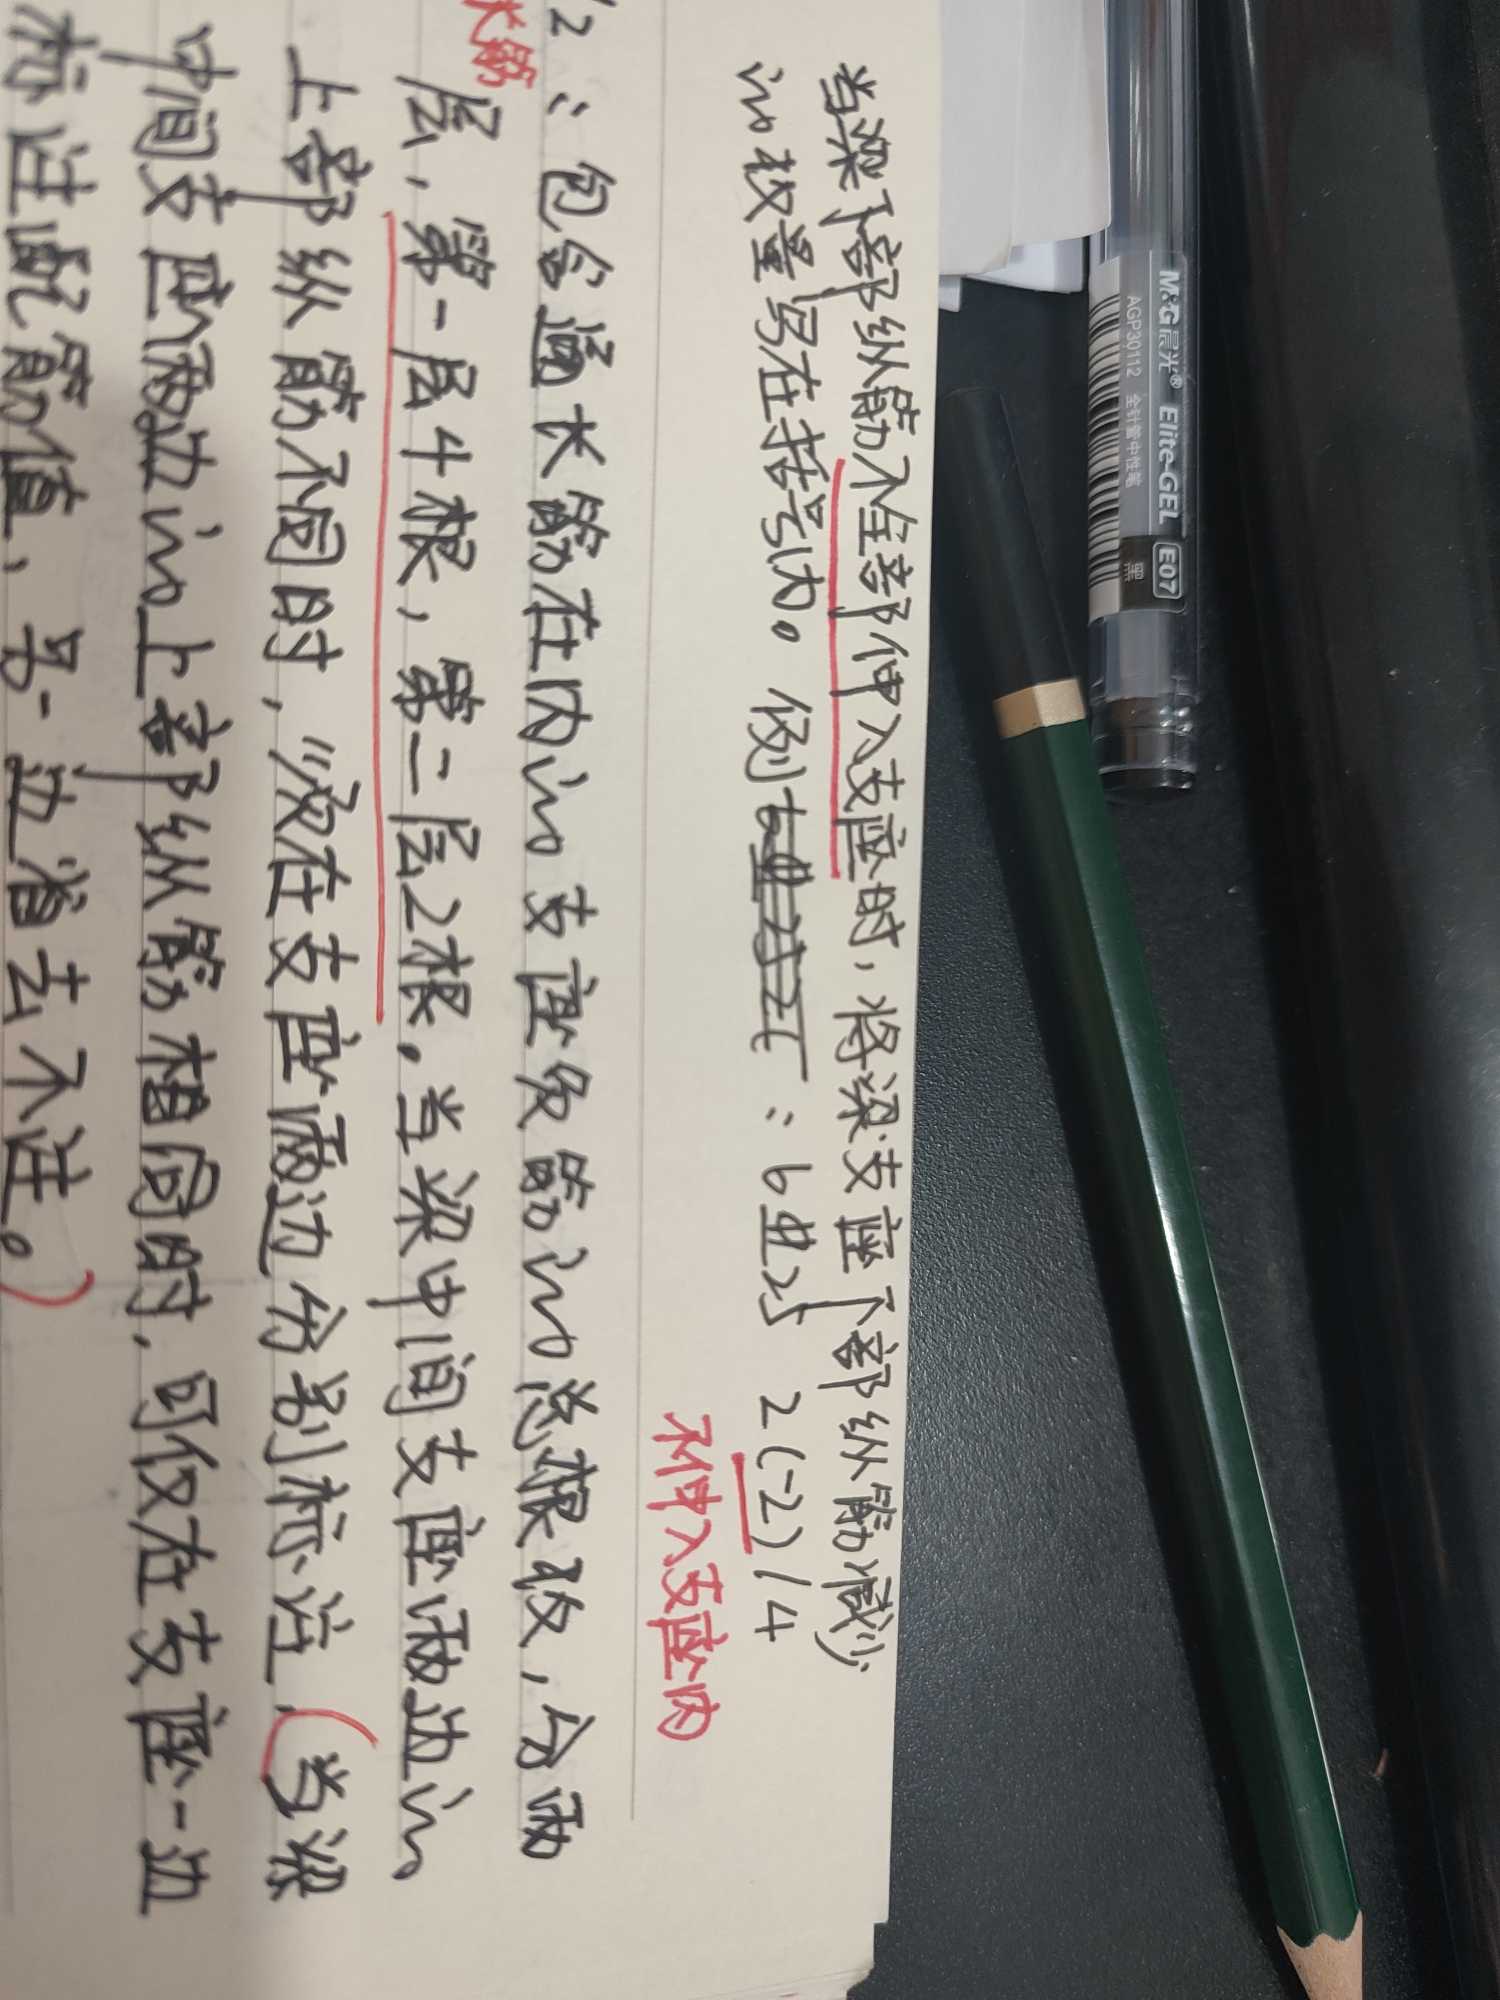 当梁下部纵筋不全部伸入支座时，将梁支座下部纵筋减少
的数量写在括号内。例 : 6业25 2(-2)/4
不伸入支座内
/2 : 包含通长筋在内的支座负筋的总根数，分两
长筋
层，第一层4根，第二层2根。当梁中间支座两边的
上部纵筋不同时，须在支座两边分别标注，(当梁
中间支座两边的上部纵筋相同时，可仅在支座一边
标注配筋值，另一边省去不注。)
M&G 晨光® Elite-GEL E07
AGP30112 全针管中性笔 黑